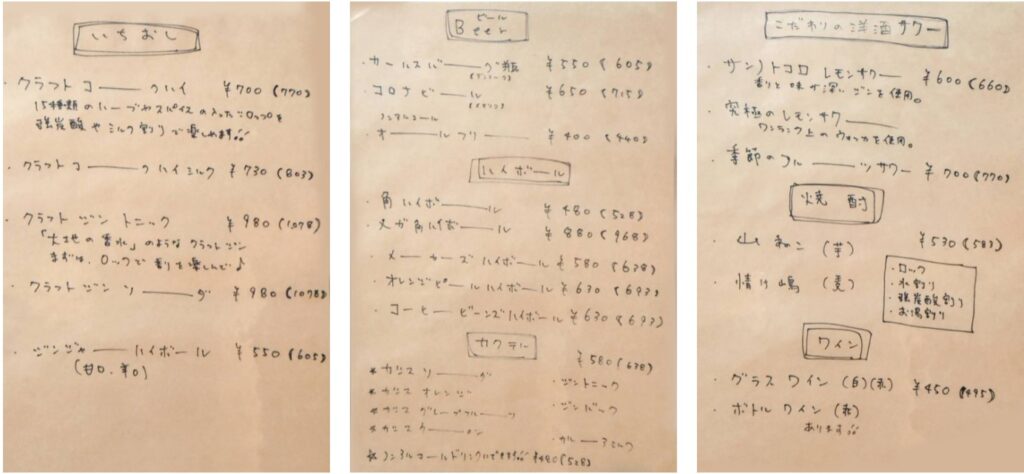 いちおし
・クラフトコーークハイ ¥700(770)
15種類のハーブやスパイスの入ったシロップを
強炭酸やミルク割りで楽しめます!!
・クラフトコーークハイミルク ¥730(803)
・クラフトジントニック ¥980(1078)
「大地の香水」のようなクラフトジン
まずは、ロックで香りを楽しんで♪
・クラフトジンソーーダ ¥980(1078)
・ジンジャーーハイボール ¥550(605)
(甘口・辛口)
ビール
Beer
・カールスバーーグ瓶 ¥550(605)
(デンマーク)
・コロナビール ¥650(715)
(メキシコ)
ノンアルコール
・オールフリー ¥400(440)
ハイボール
・角ハイボーール ¥480(528)
・メガ角ハイボーール ¥880(968)
・メーカーズハイボール ¥580(638)
・オレンジピールハイボール ¥630(693)
・コーヒービーンズハイボール ¥630(693)
カクテル
¥580(638)
*カシスソーーダ
・ジントニック
*カシスオレンジ
*カシスグレープフルーーツ
・ジンバック
*カシスウーーロン
・カルーアミルク
☆ノンアルコールドリンクにできます!! ¥480(528)
こだわりの洋酒サワー
・サントコロレモンサワー ¥600(660)
香りと味が深いジンを使用。
・究極のレモンサワー
ワンランク上のウォッカを使用。
・季節のフルーーツサワー ¥700(770)
焼酎
・山ねこ(芋) ¥530(583)
・情け嶋(麦)
・ロック
・水割り
・強炭酸割り
・お湯割り
ワイン
・グラスワイン(白)(赤) ¥450(495)
・ボトルワイン(赤)
あります!!